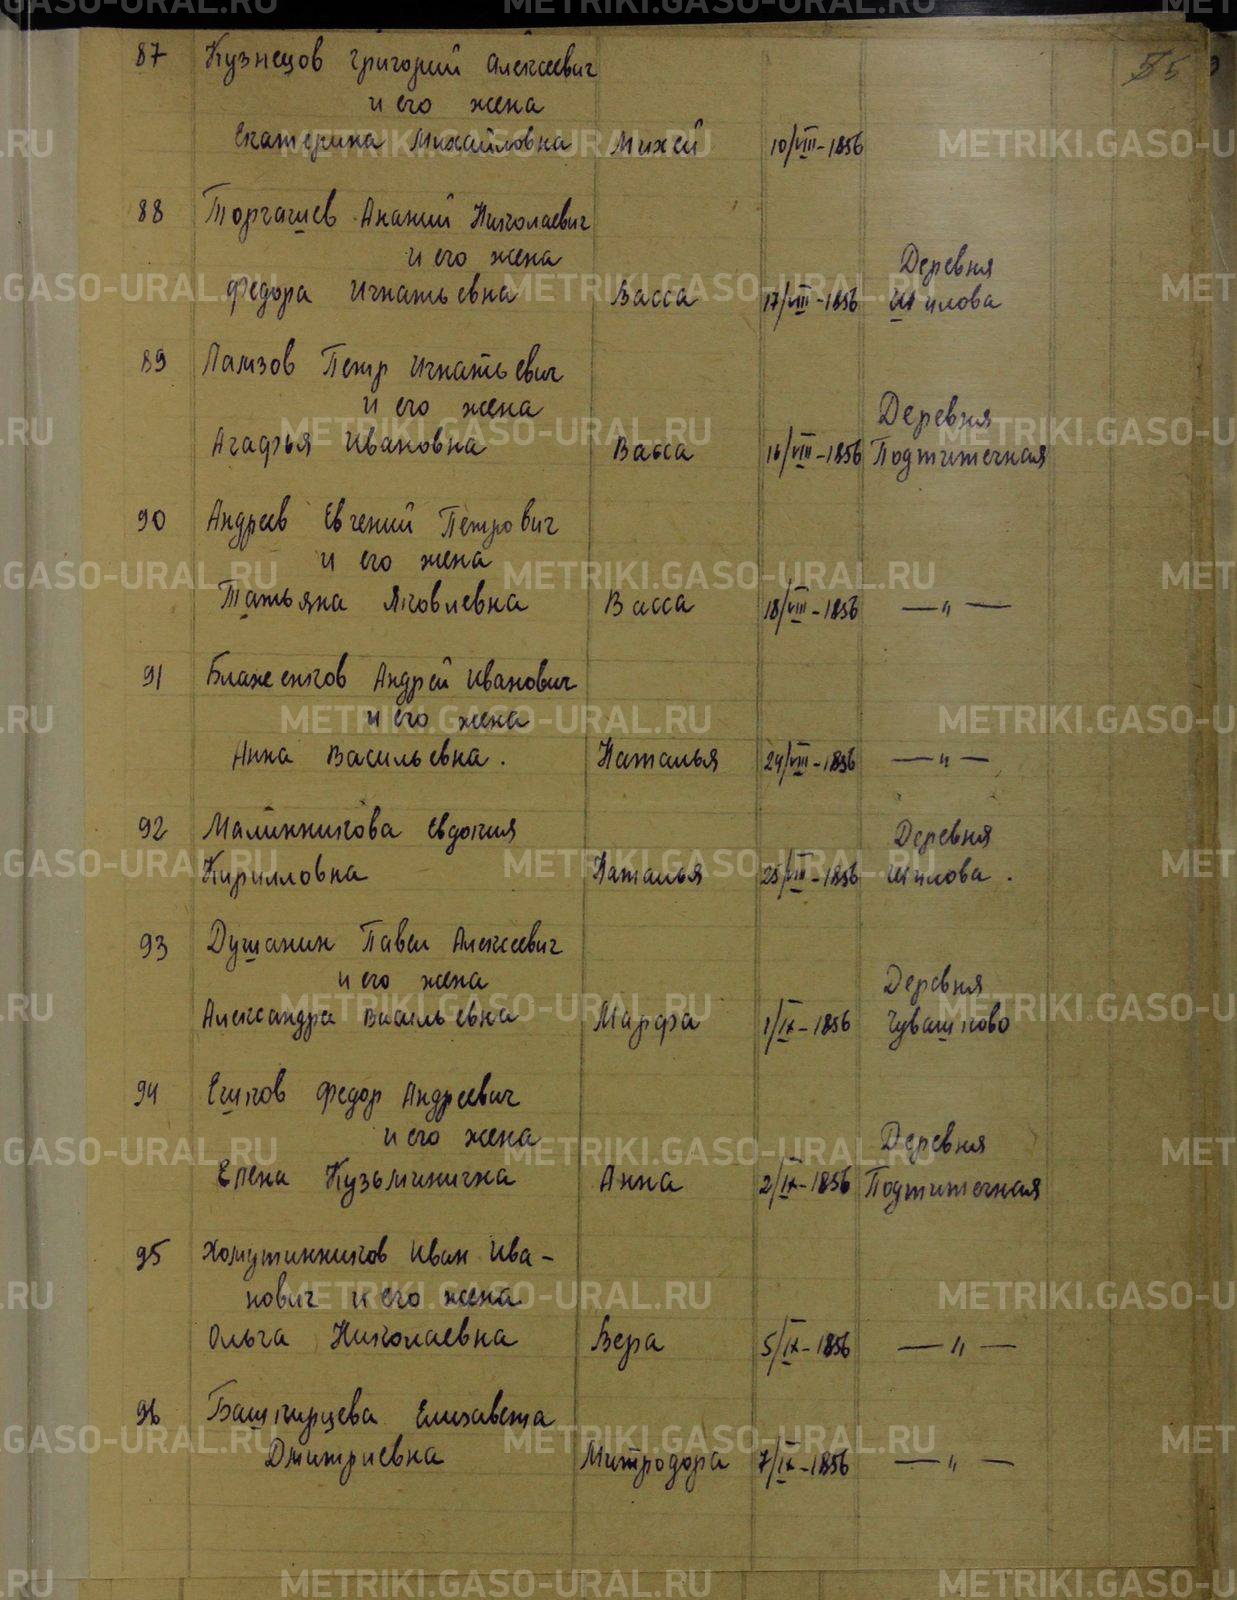 55
87 Кузнецов Григорий Алексеевич
и его жена
Екатерина Михайловна Михей 10/VIII-1856
88 Торгашев Ананий Николаевич
и его жена Деревня
Федора Игнатьевна Васса 17/VIII-1856 Шилова
89 Ламзов Петр Игнатьевич
и его жена Деревня
Агафья Ивановна Васса 16/VIII-1856 Подтитечная
90 Андреев Евгений Петрович
и его жена
Татьяна Яковлевна Васса 18/VIII-1856 — „ —
91 Блаженков Андрей Иванович
и его жена
Анна Васильевна. Наталья 24/VIII-1856 — „ —
92 Малинникова Евдокия Деревня
Кирилловна Наталья 25/VIII-1856 Шилова.
93 Душанин Павел Алексеевич
и его жена Деревня
Александра Васильевна Марфа 1/IX-1856 Чувашково
94 Федор Андреевич
и его жена Деревня
Елена Кузьминична Анна 2/IX-1856 Подтитечная
95 Хомутинников Иван Ива-
нович и его жена
Ольга Николаевна Вера 5/IX-1856 — „ —
96 Башкирцева Елизавета
Дмитриевна Митродора 7/IX-1856 — „ —
METRIKI.GASO-URAL.RU